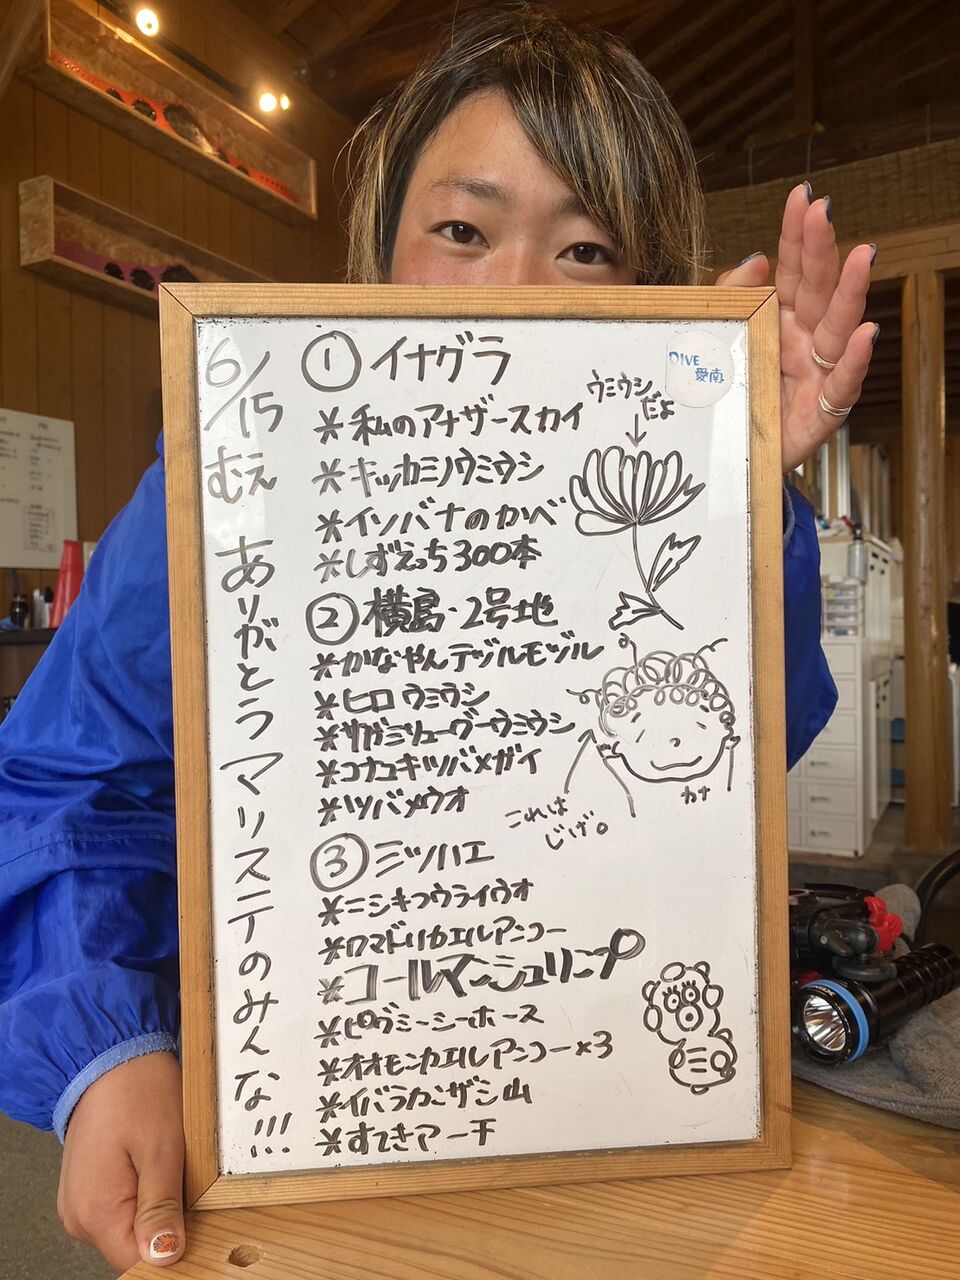 6/15 むえ ありがとう マリステのみんな!!!
① イナグラ
* 私のアナザースカイ
* キッカミノウミウシ
* イソバナのかべ
* しずえっち300本
② 横島・2号地
* かなやんデヅルモヅル
* ヒロウミウシ
* サガミリューグーウミウシ
* コナユキツバメガイ
* ツバメウオ
③ ミツハエ
* ニシキフウライウオ
* クマドリカエルアンコー
* コールマンシュリンプ
* ピグミーシーホース
* オオモンカエルアンコー×3
* イバラカンザシ山
* すてきアーチ
DIVE
愛南
ウミウシ
だよ
カナ
これは
じげ。